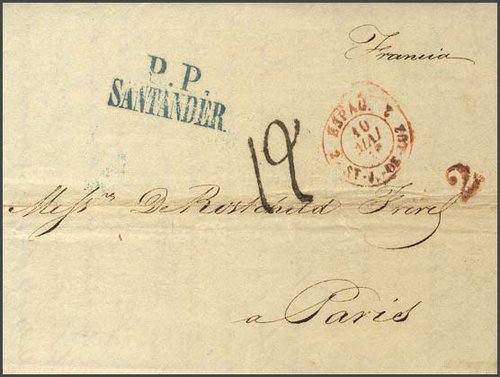 Francia
P.P.
SANTANDER.
2 ESPAG. 2
10
MAI
ST-J-DE-LUZ
12
2
Mess.rs De Rostchild Frères
a Paris